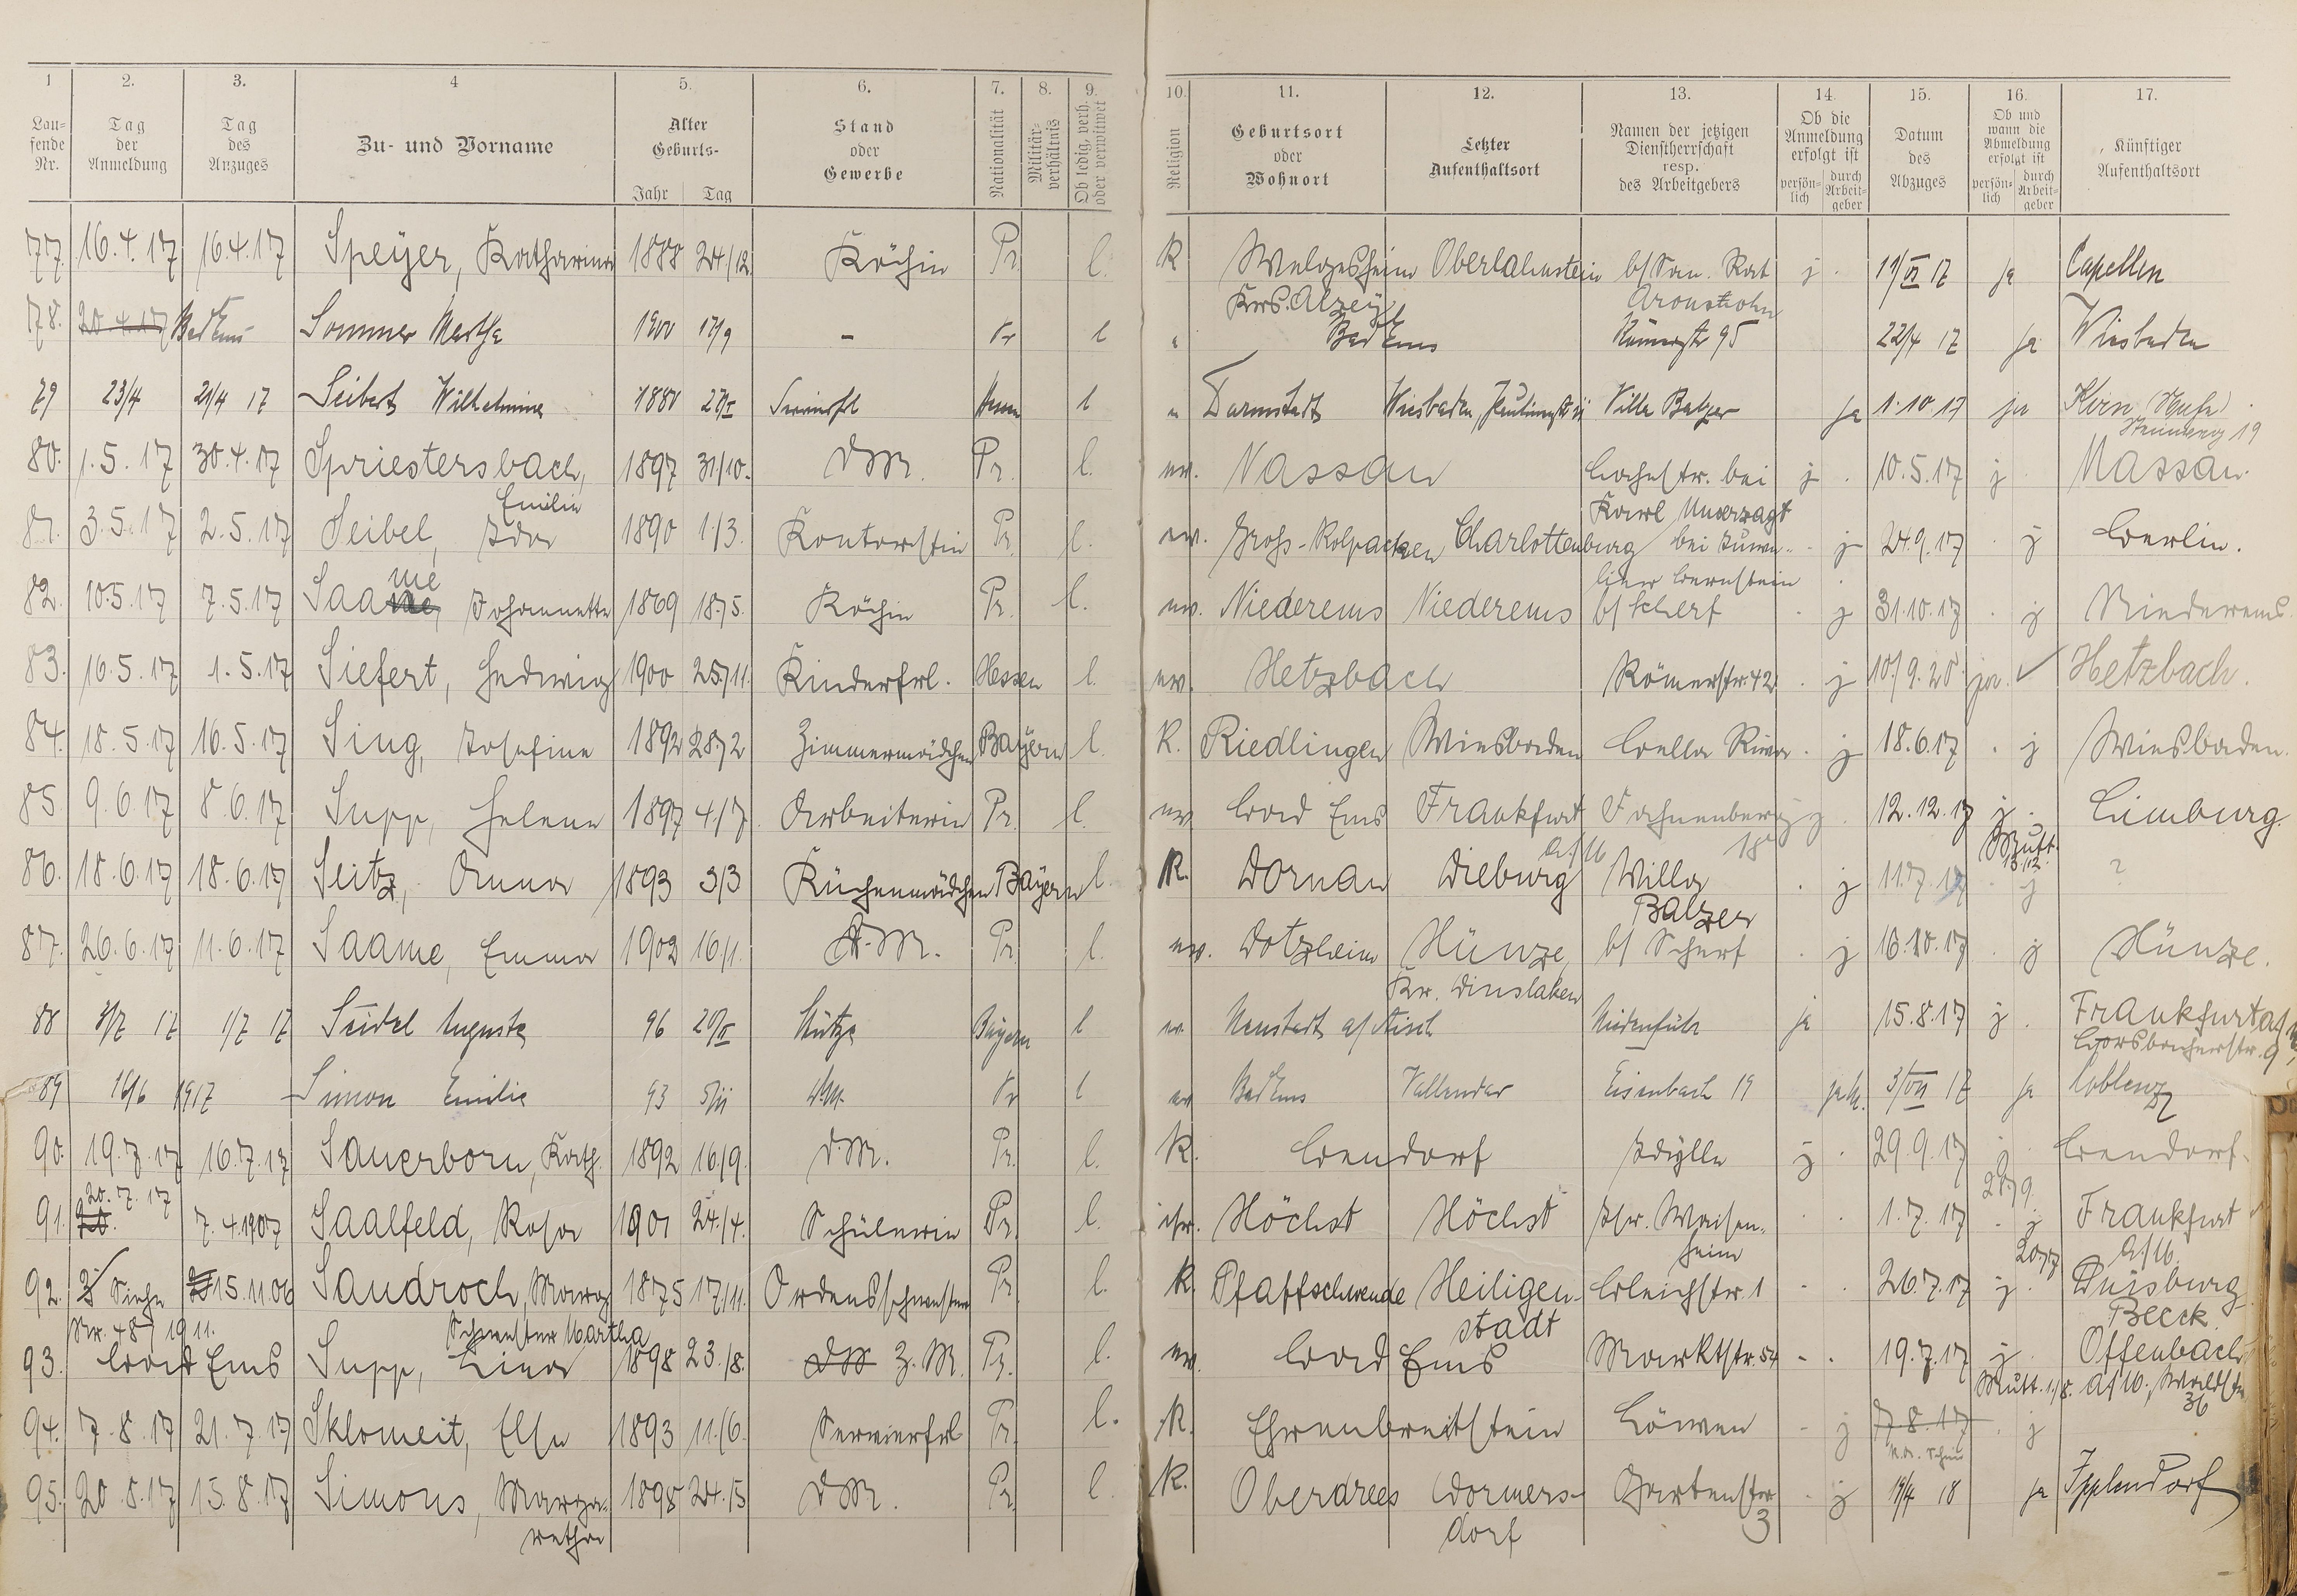 1 2. 3. 4 5. 6. 7. 8. 9. 10. 11. 12. 13. 14. 15. 16. 17.
Lau-
fende
Nr.
Tag
der
Anmeldung
Tag
des
Anzuges
Zu- und Vorname
Alter
Geburts-
Jahr Tag
Stand
oder
Gewerbe
Nationalität
Militär-
verhältnis
Ob ledig, verh.
oder verwitwet
Religion
Geburtsort
oder
Wohnort
Letzter
Aufenthaltsort
Namen der jetzigen
Dienstherrschaft
resp.
des Arbeitgebers
Ob die
Anmeldung
erfolgt ist
persön-
lich
durch
Arbeit-
geber
Datum
des
Abzuges
Ob und
wann die
Abmeldung
erfolgt ist
persön-
lich
durch
Arbeit-
geber
Künftiger
Aufenthaltsort
77. 16.4.17 16.4.17 Speyer, Katharina 1888 24./12. Köchin Pr. l. K Oberlahnstein b/ San. Rat j. 11/VI 17 ja Capellen
Krs. Alzey
78. 20.4.17 Bad Ems Sommer Martha 1900 17/9 - Pr l Bad Ems Römerstr 95 22/4 17 ja Wiesbaden
79 23/4 21/4 17 Seibert Wilhelmine l Darmstadt Wiesbaden, Villa Balzer ja 1.10.17 ja
19
80. 1.5.17 30.4.17 Spriestersbach, 1897 31/10. DM. Pr. l. ev. Nassau bei j. 10.5.17 j Nassau.
Emilie Karl Unverzagt
81. 3.5.17 2.5.17 Seibel, Ida 1890 1./3. Kontoristin Pr. l. ev. Charlottenburg bei j 24.9.17 . j Berlin.
me Bernstein
82. 10.5.17 7.5.17 Saane, Johannette 1869 18./5. Köchin Pr. l. ev. Niederems Niederems b/ Scherf . j 31.10.17 . j Niederems
83. 16.5.17 1.5.17 Siefert, Hedwig 1900 25./11. Kinderfrl. Hessen l. ev. Hetzbach Römerstr. 42 . j ja. ✓ Hetzbach.
84. 18.5.17 16.5.17 Sing, Josefine 1892 28./2 Zimmermädchen Bayern l. K. Riedlingen Wiesbaden Bella Riva . j 18.6.17 . j Wiesbaden.
85. 9.6.17 8.6.17 Supp, Helene 1897 4./7. Arbeiterin Pr. l. ev. Bad Ems Frankfurt Fahnenberg j. 12.12.17 j. Limburg.
a/M 18 Mutt.
86. 18.6.17 18.6.17 Seitz, Anna 1893 3/3 Küchenmädchen Bayern l. K. Dornau Dieburg Villa . j 11.7.17 . j ?
Balzer
87. 26.6.17 11.6.17 Saame, Emma 1902 16./1. D.M. Pr. l. ev. Dotzheim Hünxe, b/ Scherf . j 16.10.17 . j Hünxe.
Kr. Dinslaken
88 3/7 17 1/7 17 Seidel Auguste 96 20/II Stütze Bayern l ev Neustadt a/Aisch ja 15.8.17 j. Frankfurt a/M,
9
89 16/6 1917 Simon Emilie 93 D.M. Pr l ev Bad Ems Vallendar Eisenbach 19 3/VII 17 ja Coblenz
90. 19.7.17 16.7.17 Sauerborn, Kath. 1892 16./9. D.M. Pr. l. K. Bendorf Idylle j. 29.9.17 j. Bendorf.
20.7.17 28./9.
91. 20. 7.4.1907 Saalfeld, Rosa 1901 24./4. Schülerin Pr. l. isr. Höchst Höchst Isr. Waisen- . . 1.7.17 . j Frankfurt
heim 20./7 a/M.
92. Siehe 15.11.06 Sandroch, Marg. 1875 17./11. Ordensschwester Pr. l. K. Pfaffschwende Heiligen- Bleichstr. 1 . . 26.7.17 j. Duisburg
Nr. 48/1911. Schwester Martha stadt Beeck
93. Bad Ems Supp, Lina 1898 23./8. DM Z.M. Pr. l. ev. Bad Ems Marktstr. 54 - . 19.7.17 j. Offenbach
Mutt. 1./8. a/M., Waldstr.
36
94. 7.8.17 21.7.17 Sklomeit, Else 1893 11./6. Servierfrl Pr. l. K. Ehrenbreitstein Löwen - j 7.8.17 . j
95. 20.8.17 15.8.17 Simons, Marga- 1898 24./5 DM. Pr. l. K. Oberdrees Wormers- Gartenstr . j 19/4 18 ja Ipplendorf
rethe dorf 3